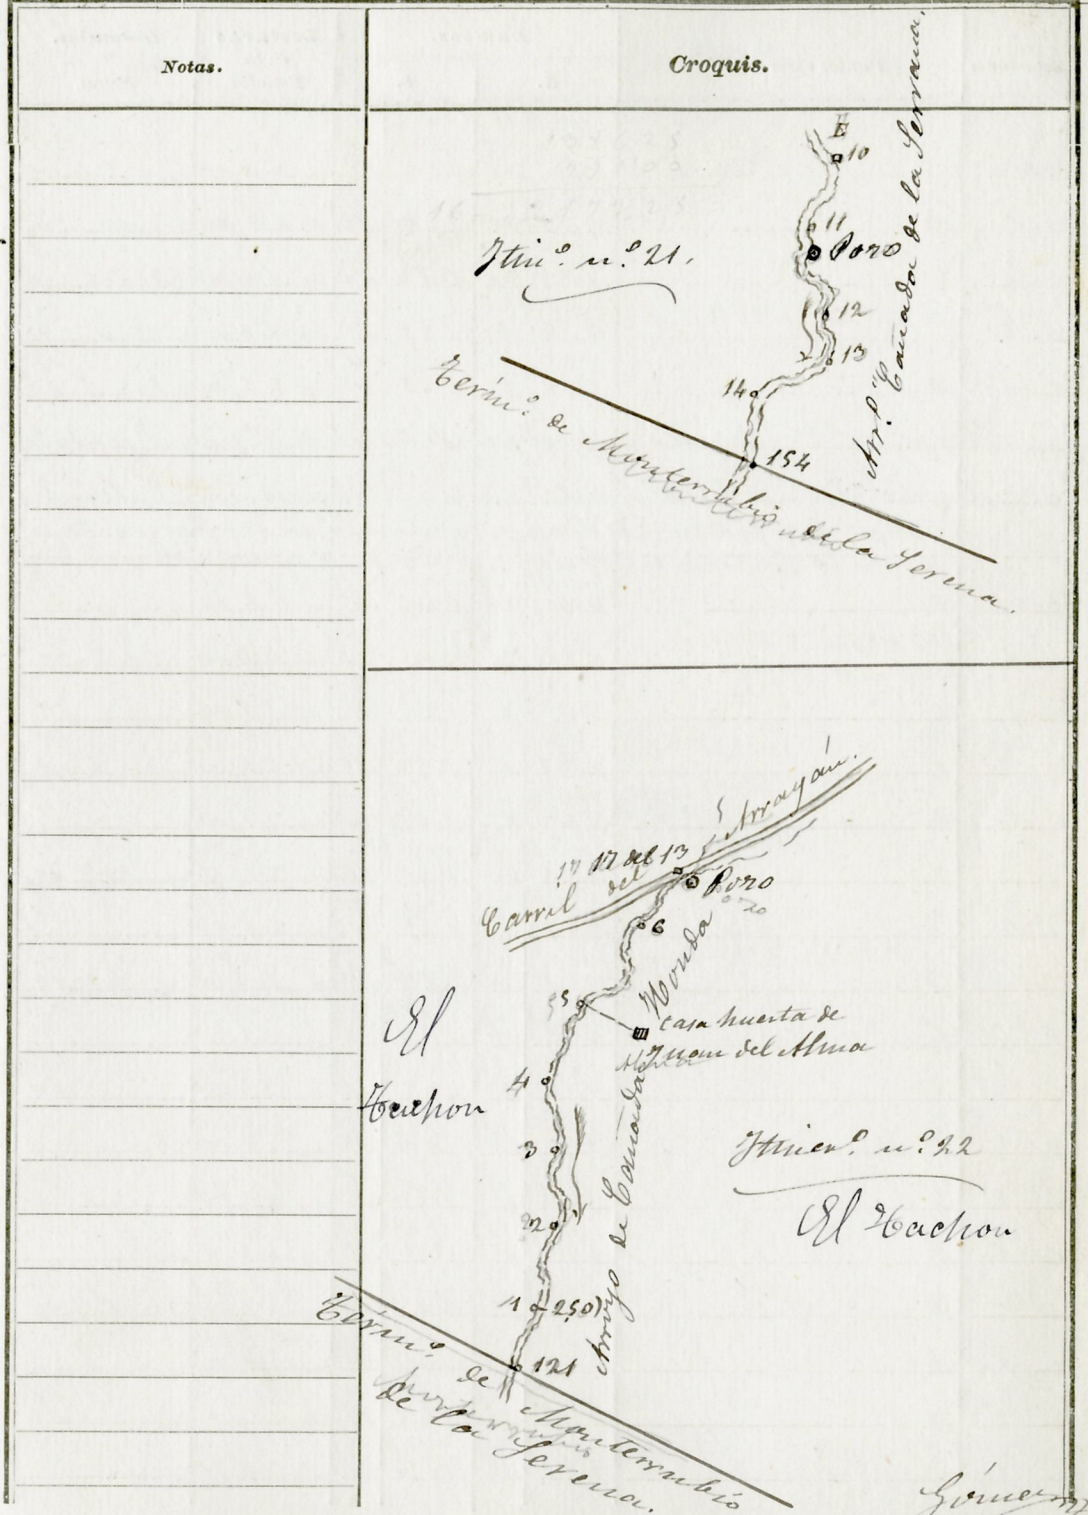 Notas.
Croquis.
10
11
Pozo
Itin.º n.º 21.
12
13
14
154
Arr.º Cañada de la Serrana.
Térm.º de Monterrubio de la Serena.
17 del 13
Carril del Arragán.
Pozo
6
5
casa huerta de
Juan del Alma
El
Hachon
4
3
2
1
250)
121
Arroyo de Cañada Honda
Itiner.º n.º 22
El Hachon
Térm.º de Monterrubio
de la Serena.